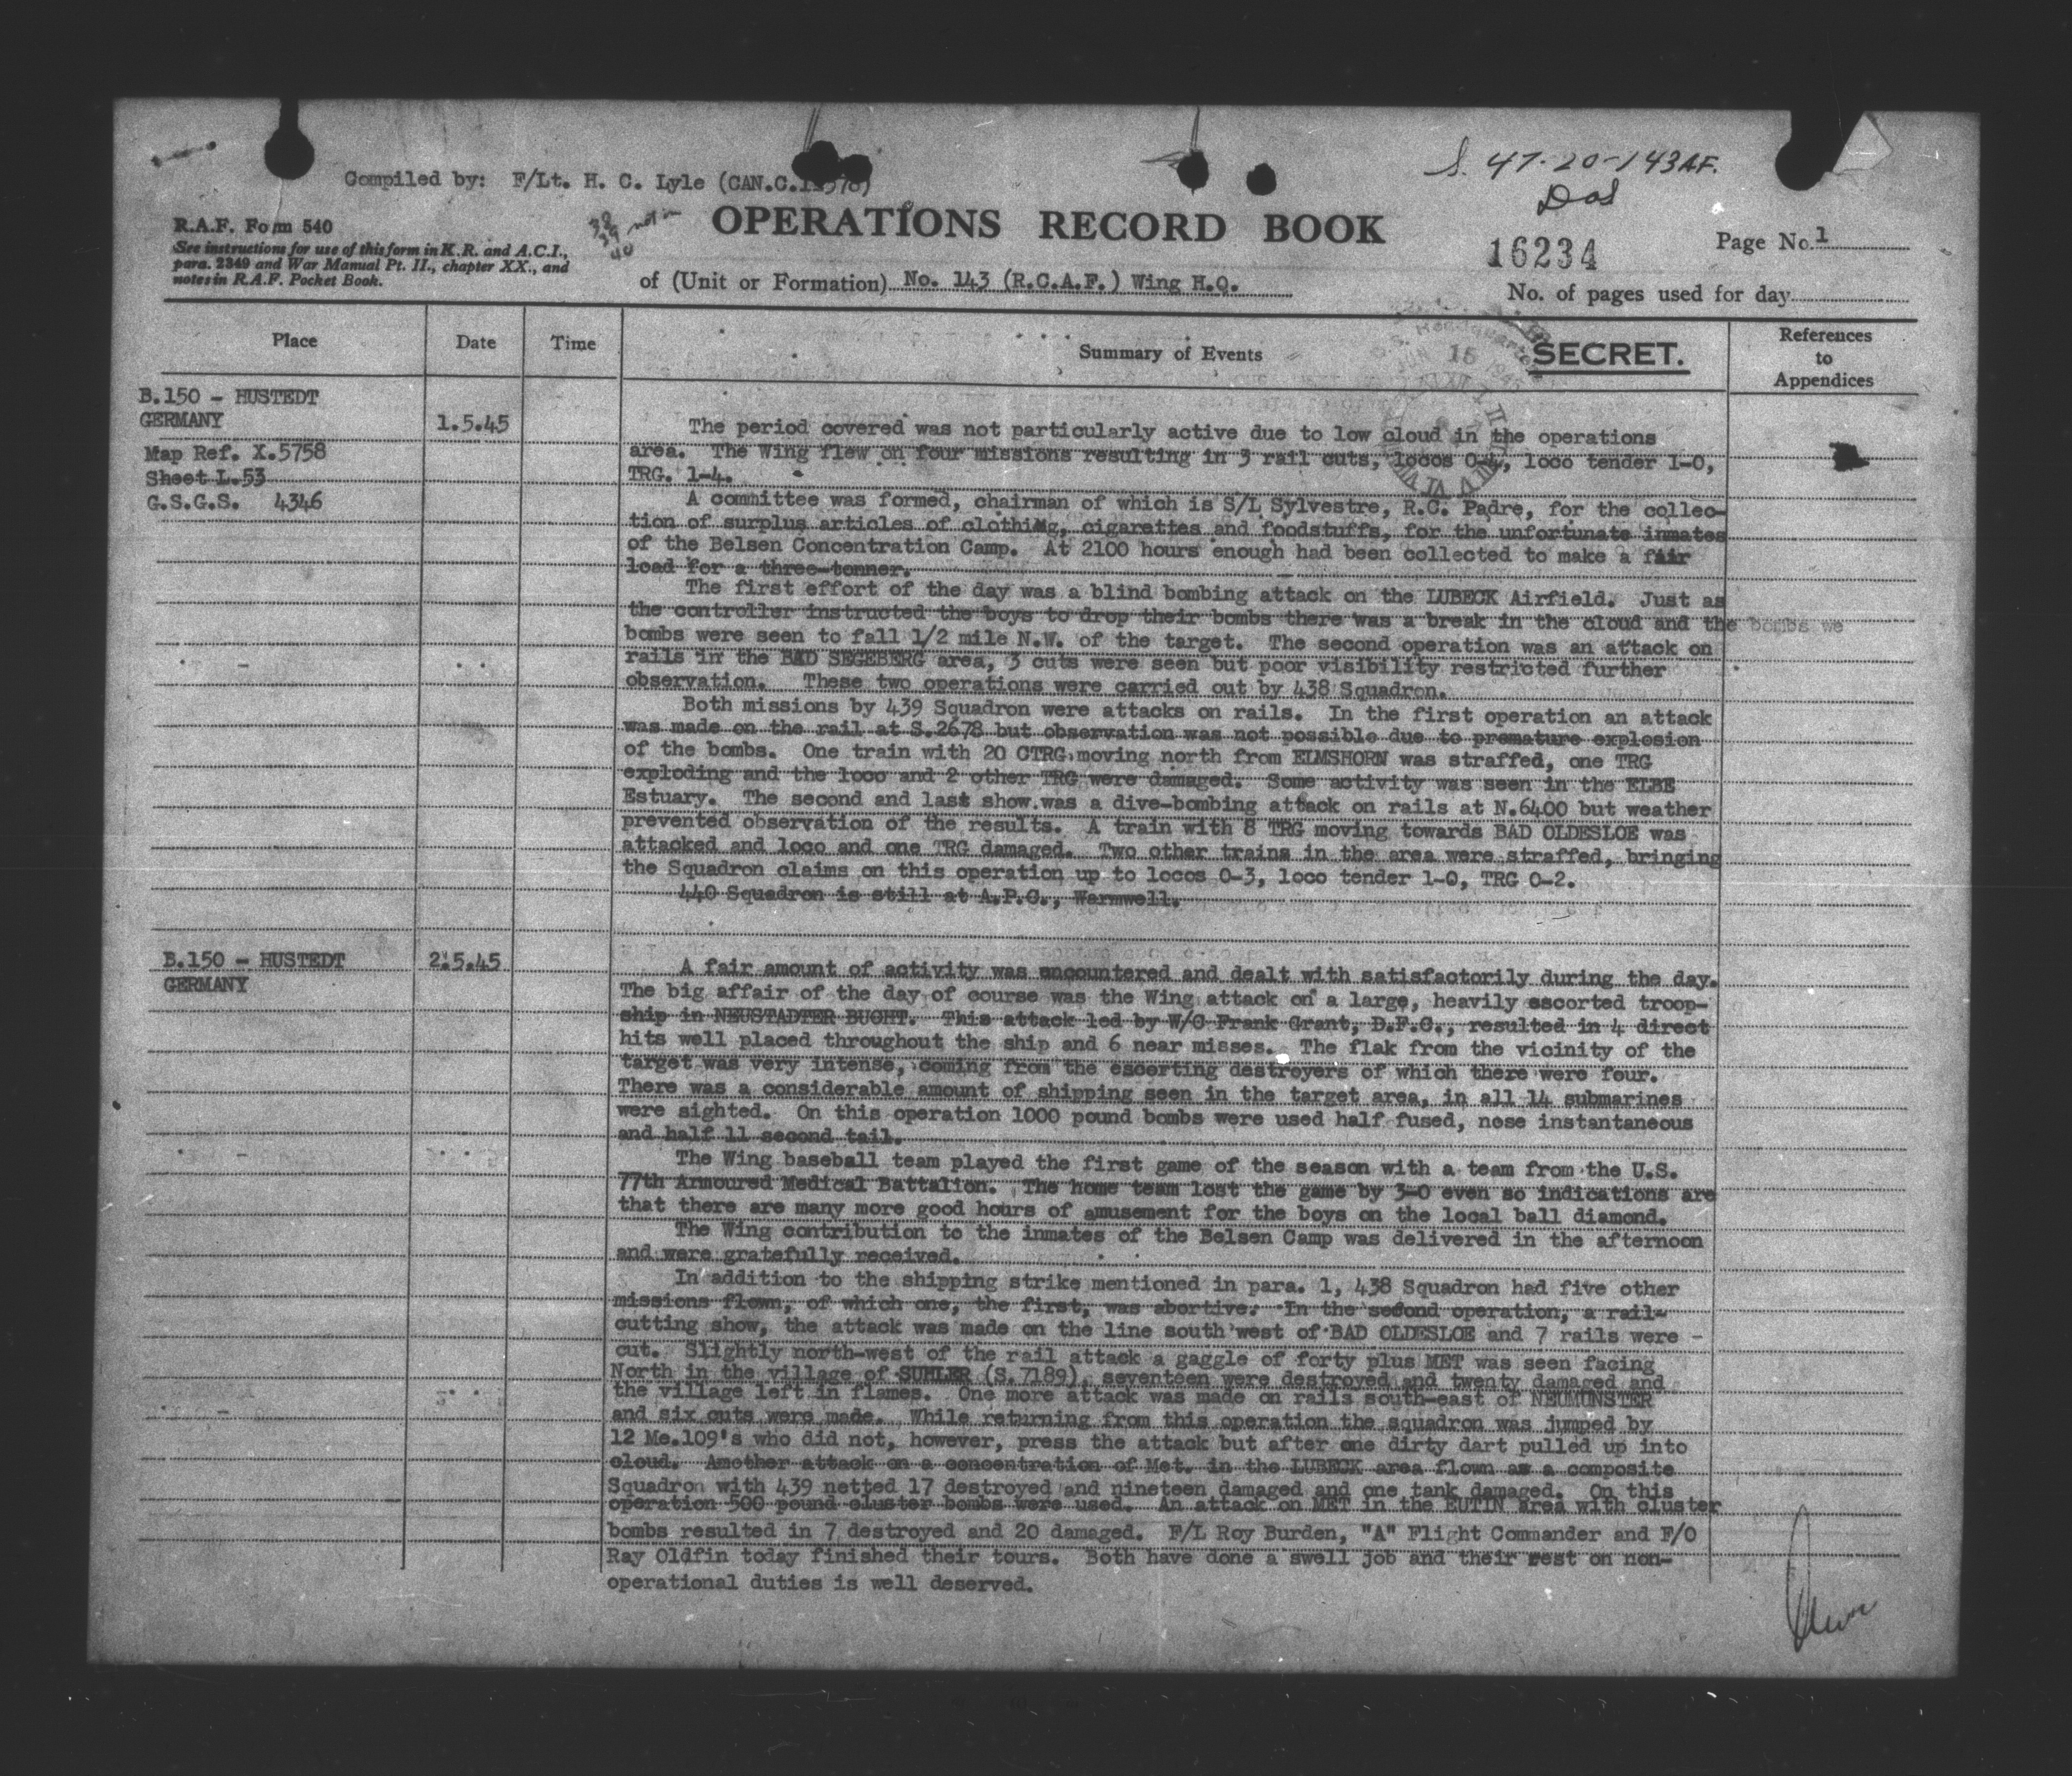 S. 47-20-143AF.
Compiled by: F/Lt. H. C. Lyle
Dos
R.A.F. Form 540
See instructions for use of this form in K.R. and A.C.I.,
para. 2349 and War Manual Pt. II., chapter XX., and
notes in R.A.F. Pocket Book.
OPERATIONS RECORD BOOK
16234
Page No. 1
of (Unit or Formation) No. 143 (R.C.A.F.) Wing H.Q.
No. of pages used for day
Place
Date
Time
Summary of Events
SECRET.
References
to
Appendices
B.150 - HUSTEDT
GERMANY
Map Ref. X.5758
Sheet L.53
G.S.G.S. 4346
1.5.45
The period covered was not particularly active due to low cloud in the operations
area. The Wing flew on four missions resulting in 3 rail cuts, locos 0-4, loco tender 1-0,
TRG. 1-4.
A committee was formed, chairman of which is S/L Sylvestre, R.C. Padre, for the collec-
tion of surplus articles of clothing, cigarettes and foodstuffs, for the unfortunate inmates
of the Belsen Concentration Camp. At 2100 hours enough had been collected to make a fair
load for a three-tonner.
The first effort of the day was a blind bombing attack on the LUBECK Airfield. Just as
the controller instructed the boys to drop their bombs there was a break in the cloud and the bombs we
bombs were seen to fall 1/2 mile N.W. of the target. The second operation was an attack on
rails in the BAD SEGEBERG area, 3 cuts were seen but poor visibility restricted further
observation. These two operations were carried out by 438 Squadron.
Both missions by 439 Squadron were attacks on rails. In the first operation an attack
was made on the rail at S.2678 but observation was not possible due to premature explosion
of the bombs. One train with 20 CTRG moving north from ELMSHORN was straffed, one TRG
exploding and the loco and 2 other TRG were damaged. Some activity was seen in the ELBE
Estuary. The second and last show was a dive-bombing attack on rails at N.6400 but weather
prevented observation of the results. A train with 8 TRG moving towards BAD OLDESLOE was
attacked and loco and one TRG damaged. Two other trains in the area were straffed, bringing
the Squadron claims on this operation up to locos 0-3, loco tender 1-0, TRG 0-2.
440 Squadron is still at A.P.C., Warmwell.
B.150 - HUSTEDT
GERMANY
2.5.45
A fair amount of activity was encountered and dealt with satisfactorily during the day.
The big affair of the day of course was the Wing attack on a large, heavily escorted troop-
ship in NEUSTADTER BUCHT. This attack led by W/C Frank Grant, D.F.C., resulted in 4 direct
hits well placed throughout the ship and 6 near misses. The flak from the vicinity of the
target was very intense, coming from the escorting destroyers of which there were four.
There was a considerable amount of shipping seen in the target area, in all 14 submarines
were sighted. On this operation 1000 pound bombs were used half fused, nose instantaneous
and half 11 second tail.
The Wing baseball team played the first game of the season with a team from the U.S.
77th Armoured Medical Battalion. The home team lost the game by 3-0 even so indications are
that there are many more good hours of amusement for the boys on the local ball diamond.
The Wing contribution to the inmates of the Belsen Camp was delivered in the afternoon
and were gratefully received.
In addition to the shipping strike mentioned in para. 1, 438 Squadron had five other
missions flown, of which one, the first, was abortive. In the second operation, a rail-
cutting show, the attack was made on the line south west of BAD OLDESLOE and 7 rails were -
cut. Slightly north-west of the rail attack a gaggle of forty plus MET was seen facing
North in the village of SUHLER (S.7189), seventeen were destroyed and twenty damaged and
the village left in flames. One more attack was made on rails south-east of NEUMUNSTER
and six cuts were made. While returning from this operation the squadron was jumped by
12 Me.109's who did not, however, press the attack but after one dirty dart pulled up into
cloud. Another attack on a concentration of Met. in the LUBECK area flown as a composite
Squadron with 439 netted 17 destroyed and nineteen damaged and one tank damaged. On this
operation 500 pound cluster bombs were used. An attack on MET in the EUTIN area with cluster
bombs resulted in 7 destroyed and 20 damaged. F/L Roy Burden, "A" Flight Commander and F/O
Ray Oldfin today finished their tours. Both have done a swell job and their rest on non-
operational duties is well deserved.